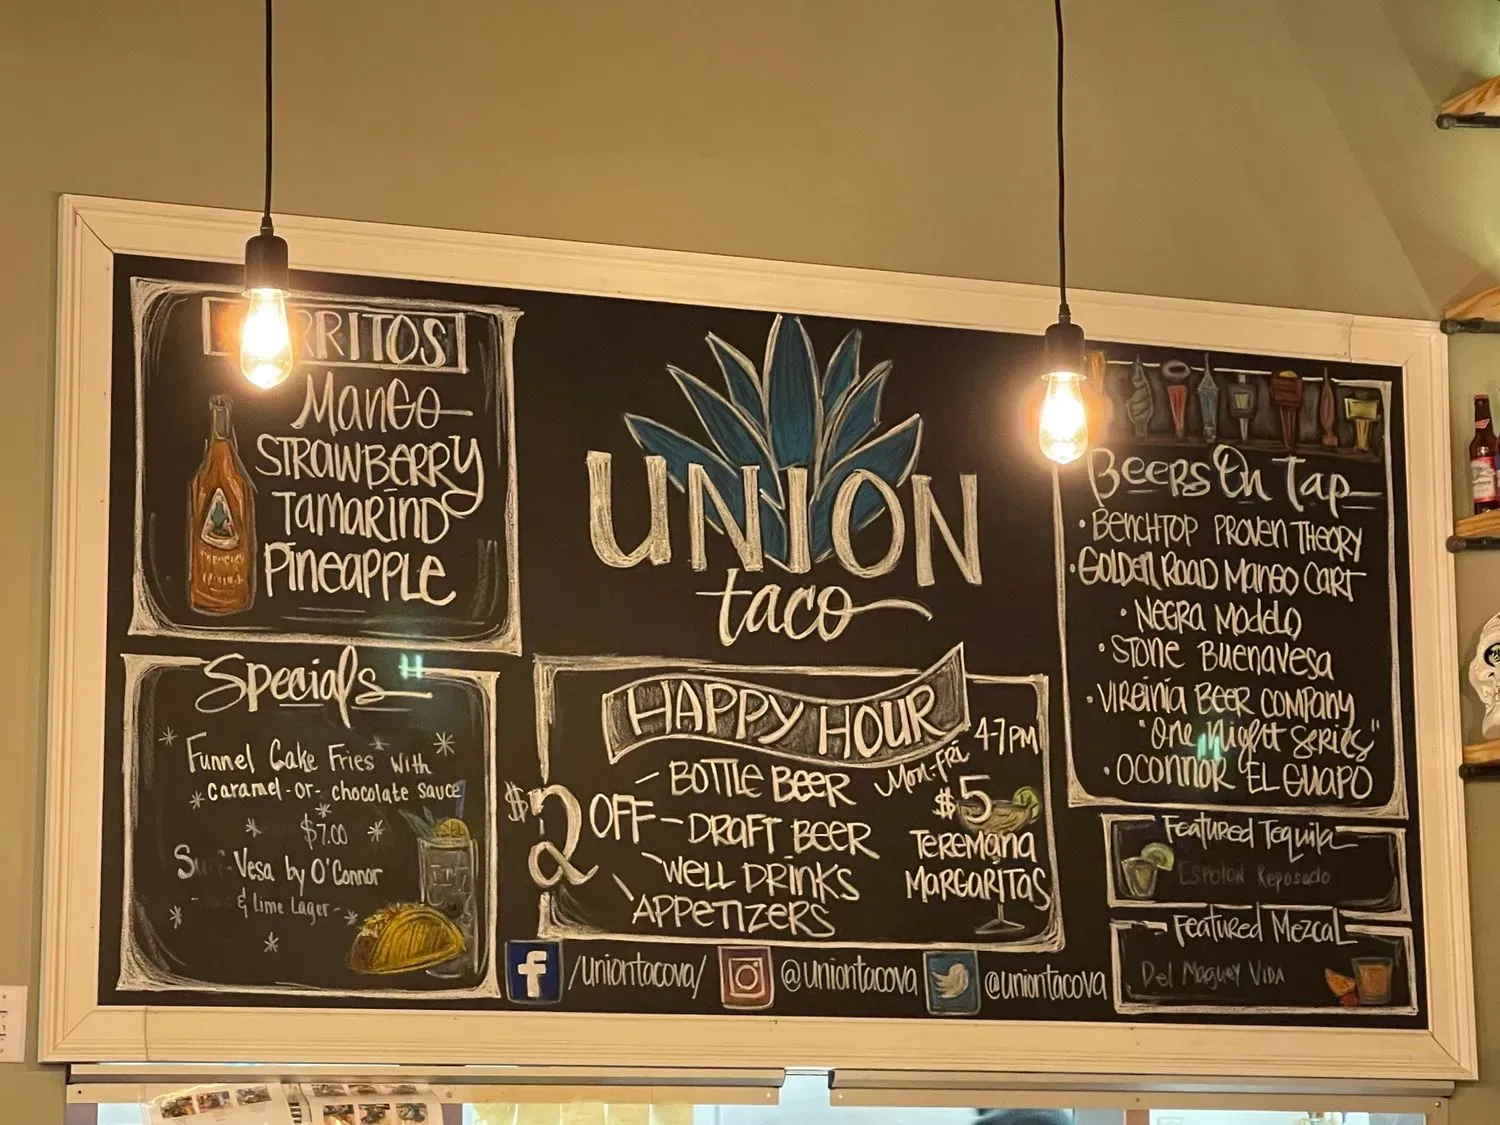 RRITOS
Mango
Strawberry
Tamarind
Pineapple
Specials
Funnel Cake Fries with
caramel -or- chocolate sauce
$7.00
Vesa by O'Connor
& Lime Lager-
UNION
taco
HAPPY HOUR
4-7PM
Mon-Fri
$2 OFF
BOTTLE BEER
DRAFT BEER
WELL DRINKS
APPETIZERS
$5
TEREMANA
MARGARITAS
f /uniontacova/
@uniontacova
@uniontacova
Beers On Tap
• BENCHTOP PROVEN THEORY
• GOLDEN ROAD MANGO CART
• NEGRA MODELO
• STONE BUENAVESA
• VIRGINIA BEER COMPANY
"One Night Series"
• OCONNOR EL GUAPO
Featured Tequila
ESPOLON Reposado
Featured Mezcal
Del Maguey VIDA